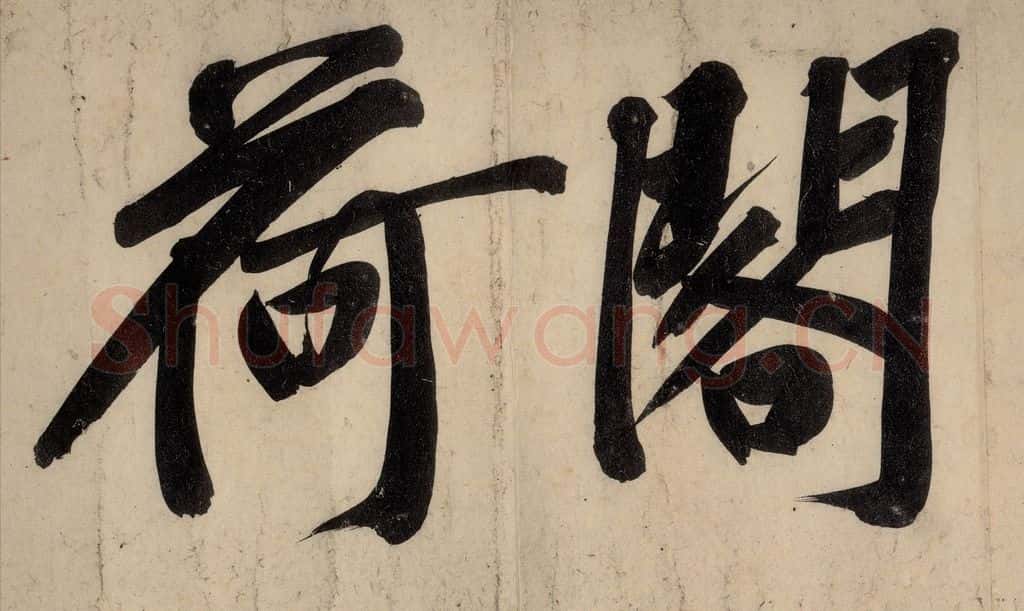 閣
荷
Shufawang.CN